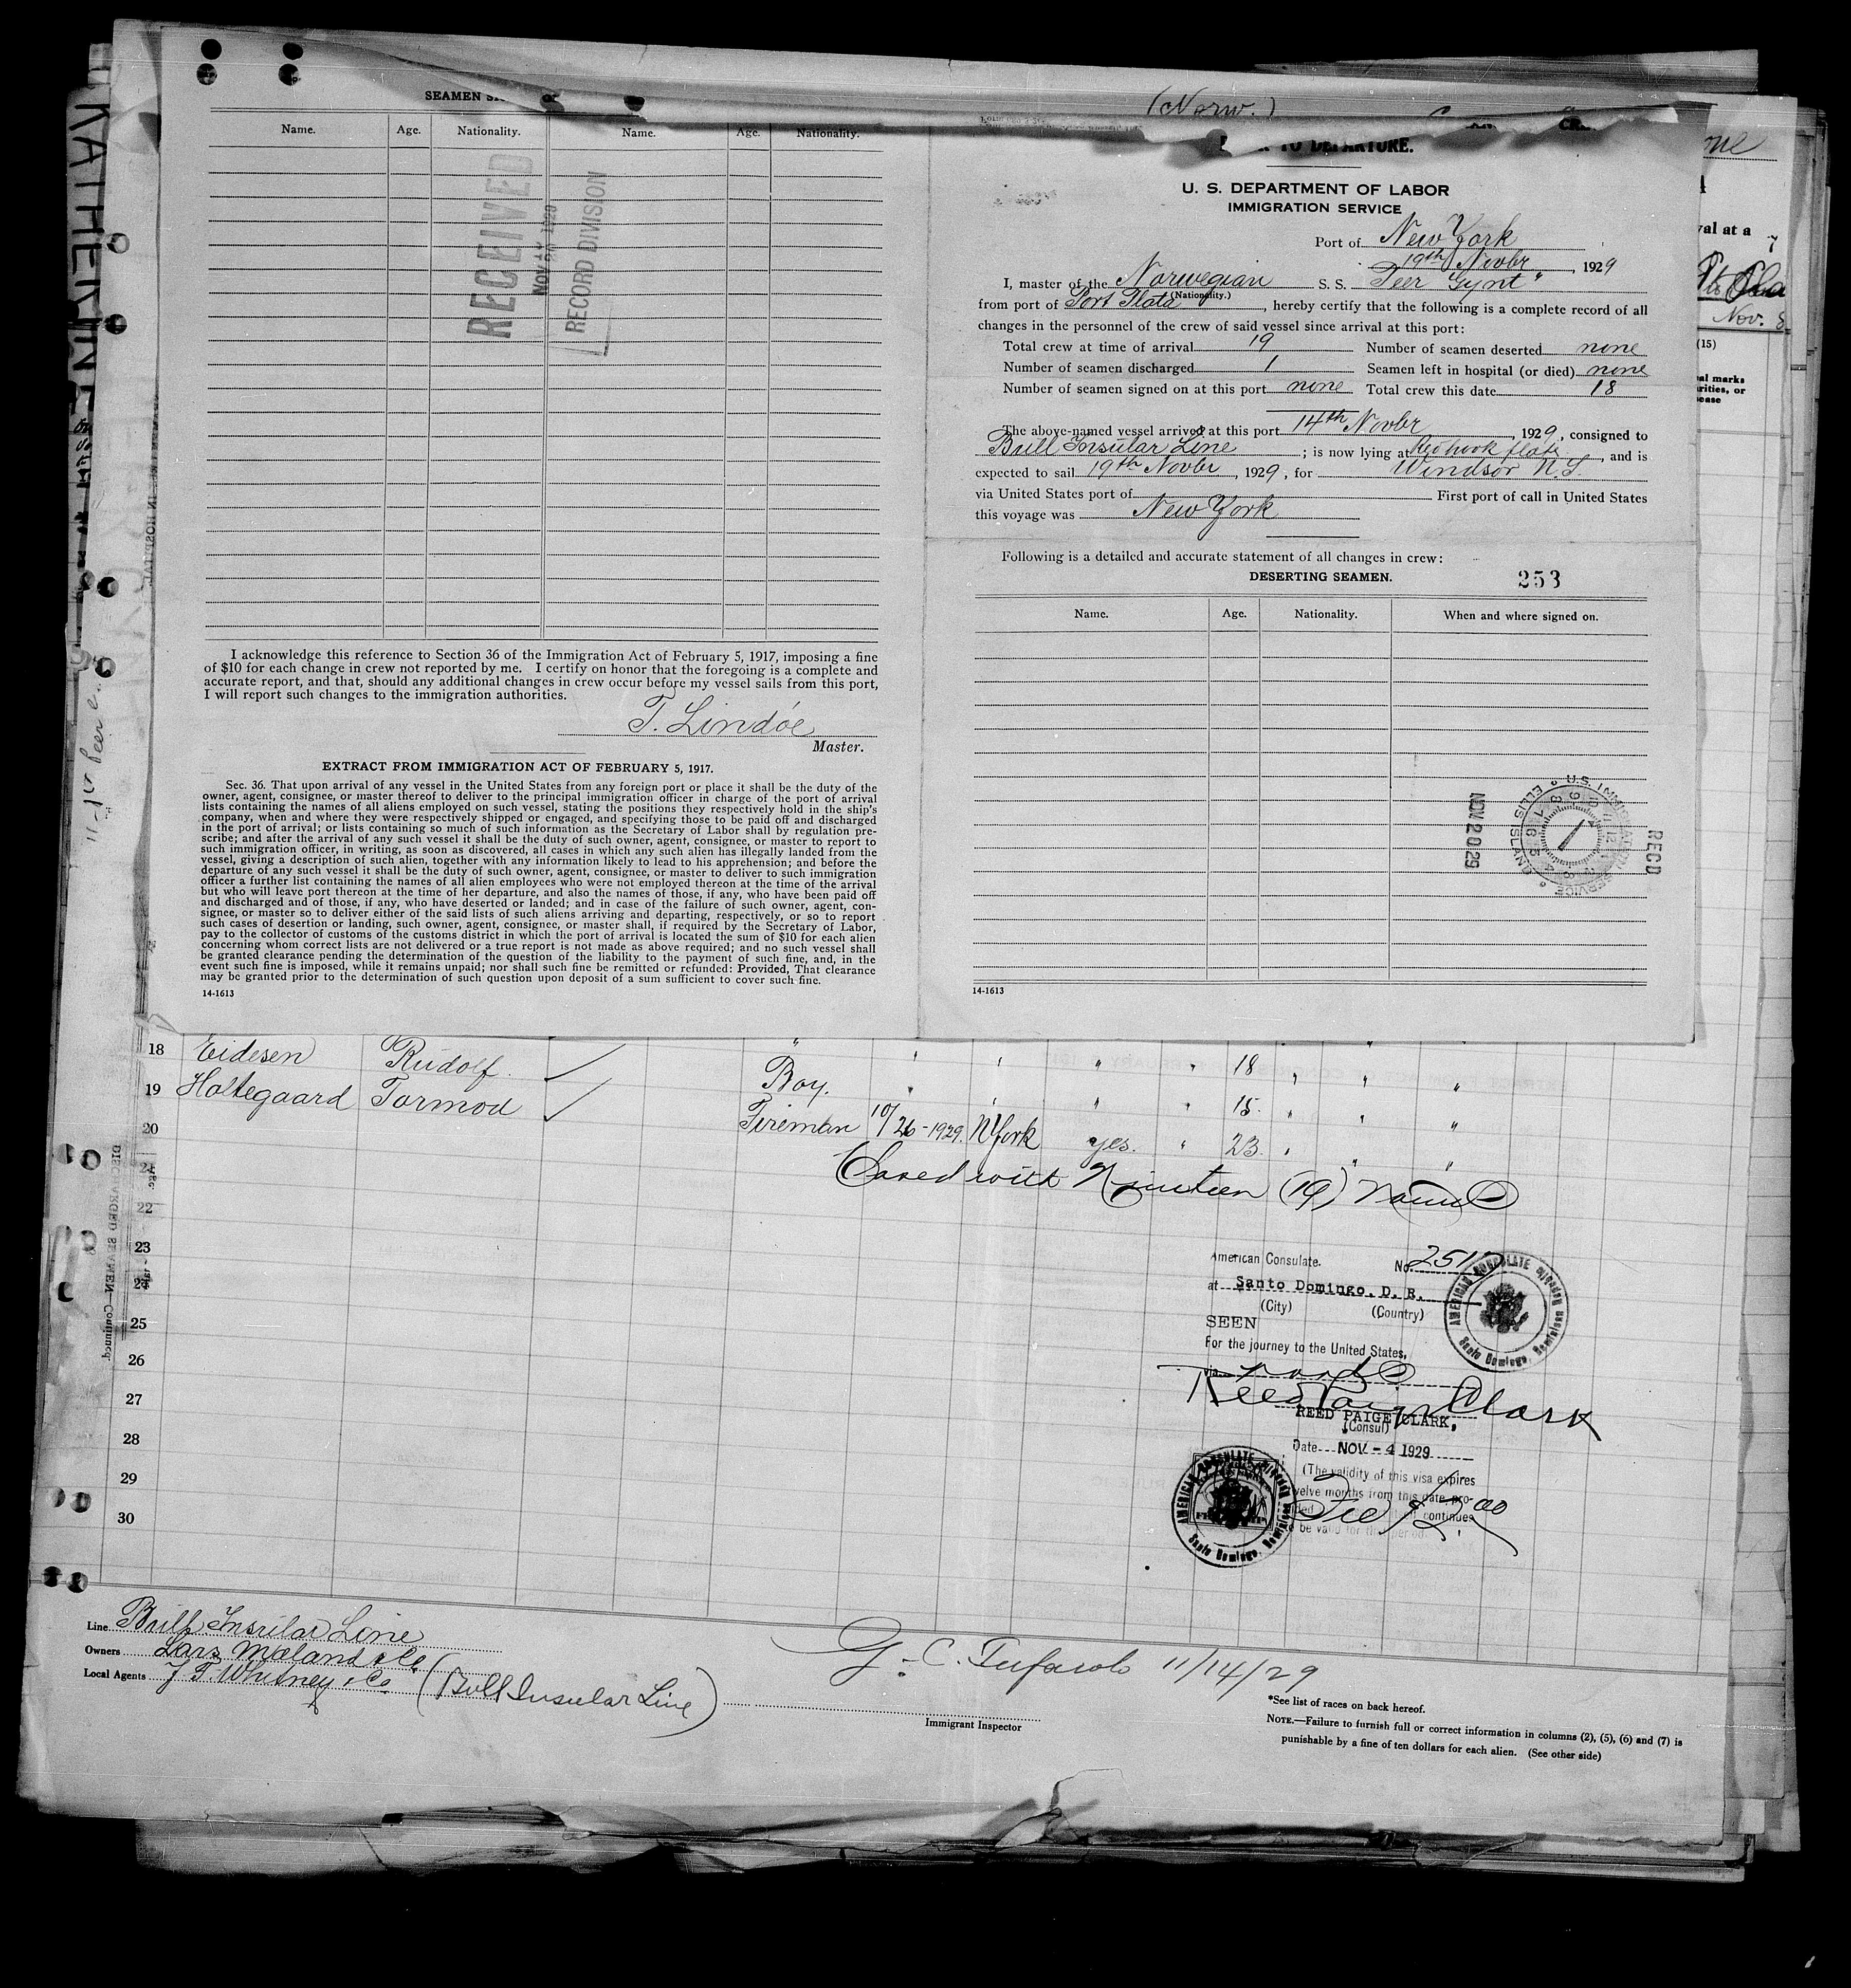 SEAMEN
Name. Age. Nationality. Name. Age. Nationality.
RECEIVED
NOV 1929
RECORD DIVISION
I acknowledge this reference to Section 36 of the Immigration Act of February 5, 1917, imposing a fine
of $10 for each change in crew not reported by me. I certify on honor that the foregoing is a complete and
accurate report, and that, should any additional changes in crew occur before my vessel sails from this port,
I will report such changes to the immigration authorities.
T. Lindöe
Master.
EXTRACT FROM IMMIGRATION ACT OF FEBRUARY 5, 1917.
Sec. 36. That upon arrival of any vessel in the United States from any foreign port or place it shall be the duty of the
owner, agent, consignee, or master thereof to deliver to the principal immigration officer in charge of the port of arrival
lists containing the names of all aliens employed on such vessel, stating the positions they respectively hold in the ship's
company, when and where they were respectively shipped or engaged, and specifying those to be paid off and discharged
in the port of arrival; or lists containing so much of such information as the Secretary of Labor shall by regulation pre-
scribe; and after the arrival of any such vessel it shall be the duty of such owner, agent, consignee, or master to report to
such immigration officer, in writing, as soon as discovered, all cases in which any such alien has illegally landed from the
vessel, giving a description of such alien, together with any information likely to lead to his apprehension; and before the
departure of any such vessel it shall be the duty of such owner, agent, consignee, or master to deliver to such immigration
officer a further list containing the names of all alien employees who were not employed thereon at the time of the arrival
but who will leave port thereon at the time of her departure, and also the names of those, if any, who have been paid off
and discharged and of those, if any, who have deserted or landed; and in case of the failure of such owner, agent, con-
signee, or master so to deliver either of the said lists of such aliens arriving and departing, respectively, or so to report
such cases of desertion or landing, such owner, agent, consignee, or master shall, if required by the Secretary of Labor,
pay to the collector of customs of the customs district in which the port of arrival is located the sum of $10 for each alien
concerning whom correct lists are not delivered or a true report is not made as above required; and no such vessel shall
be granted clearance pending the determination of the question of the liability to the payment of such fine, and, in the
event such fine is imposed, while it remains unpaid; nor shall such fine be remitted or refunded: Provided, That clearance
may be granted prior to the determination of such question upon deposit of a sum sufficient to cover such fine.
14-1613
(Norw.)
TO DEPARTURE.
U. S. DEPARTMENT OF LABOR
IMMIGRATION SERVICE
Port of New York
19th Novbr, 1929
I, master of the Norwegian S. S. "Peer Gynt"
(Nationality.)
from port of Port Plata, hereby certify that the following is a complete record of all
changes in the personnel of the crew of said vessel since arrival at this port:
Total crew at time of arrival 19 Number of seamen deserted none
Number of seamen discharged 1 Seamen left in hospital (or died) none
Number of seamen signed on at this port none Total crew this date 18
The above-named vessel arrived at this port 14th Novbr, 1929, consigned to
Bull Insular Line; is now lying at Redhook flats, and is
expected to sail 19th Novbr, 1929, for Windsor N.S.
via United States port of First port of call in United States
this voyage was New York
Following is a detailed and accurate statement of all changes in crew:
DESERTING SEAMEN. 253
Name. Age. Nationality. When and where signed on.
U.S. IMMIGRATION SERVICE ELLIS ISLAND
NOV 20 29
RECD
14-1613
val at a
Nov. 8
(15)
KATHERINE
18 Eidesen Rudolf " " 18 " " "
19 Holtegaard Tormod Boy. " " " " 15 " " "
20 Fireman 10/26-1929 N York yes. " 23 " " "
Closed with Nineteen (19) names
21
22
23
24
25
26
27
28
29
30
DISCHARGED SEAMEN—Continued.
American Consulate. No. 2511
at Santo Domingo, D. R.
(City) (Country)
SEEN
For the journey to the United States,
via
Reed Paige Clark
REED PAIGE CLARK,
(Consul)
Date NOV - 4 1929
(The validity of this visa expires
twelve months from this date pro-
continues
to be valid for the period.
Fee $2.00
AMERICAN CONSULATE
Santo Domingo, Dominican Republic
AMERICAN CONSULATE
Santo Domingo, Dominican Republic
Line Bull Insular Line
Owners Lars Meland & Co
Local Agents J. F. Whitney & Co. (Bull Insular Line)
11/14/29
Immigrant Inspector
*See list of races on back hereof.
NOTE.—Failure to furnish full or correct information in columns (2), (5), (6) and (7) is
punishable by a fine of ten dollars for each alien. (See other side)